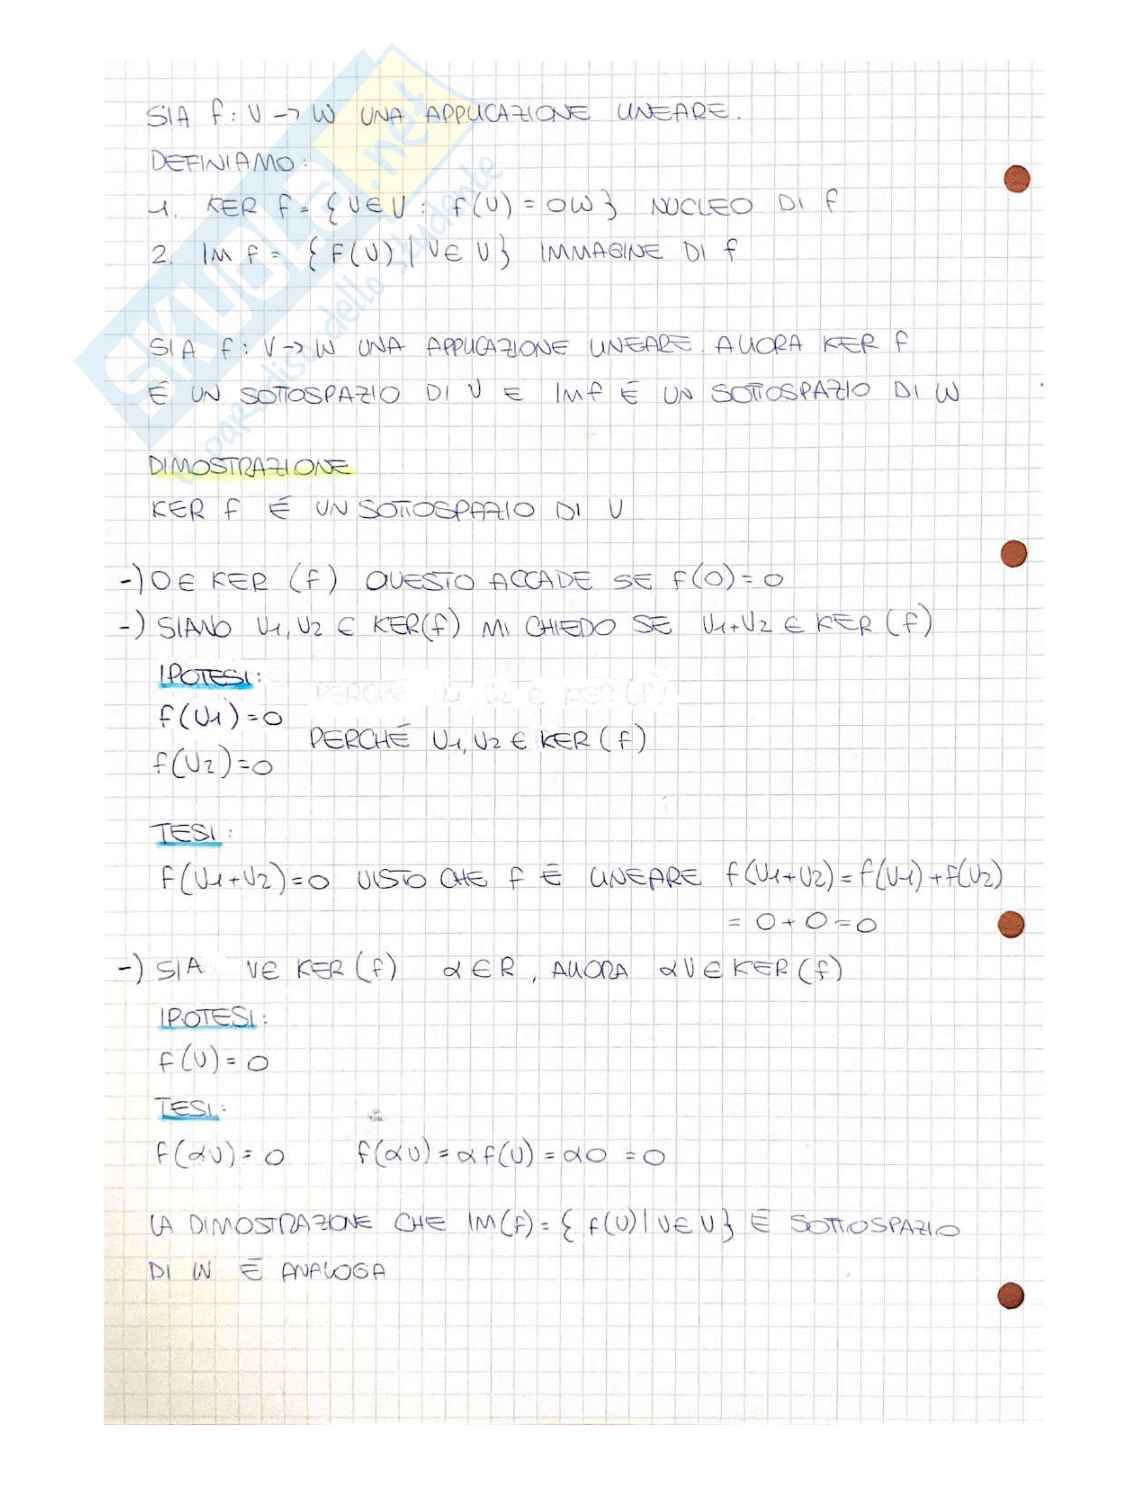 SKUOLA.net
il paradiso dello studente
SIA f: V → W UNA APPLICAZIONE LINEARE.
DEFINIAMO:
1. KER f = { V∈V : f(V) = 0W } NUCLEO DI f
2. IM f = { f(V) | V∈ V } IMMAGINE DI f
SIA f: V → W UNA APPLICAZIONE LINEARE. ALLORA KER f
É UN SOTTOSPAZIO DI V E IMf É UN SOTTOSPAZIO DI W
DIMOSTRAZIONE
KER f É UN SOTTOSPAZIO DI V
-) 0∈ KER (f) QUESTO ACCADE SE f(0) = 0
-) SIANO V1, V2 ∈ KER(f) MI CHIEDO SE V1+V2 ∈ KER (f)
IPOTESI:
f(V1) = 0
PERCHÉ V1, V2 ∈ KER (f)
f(V2) = 0
TESI:
f(V1+V2) = 0 VISTO CHE f É LINEARE f(V1+V2) = f(V1) + f(V2)
= 0 + 0 = 0
-) SIA V∈ KER (f) α ∈ R, ALLORA αV ∈ KER (f)
IPOTESI:
f(V) = 0
TESI:
f(αV) = 0 f(αV) = α f(V) = α0 = 0
LA DIMOSTRAZIONE CHE IM(f) = { f(V) | V∈ V } É SOTTOSPAZIO
DI W É ANALOGA